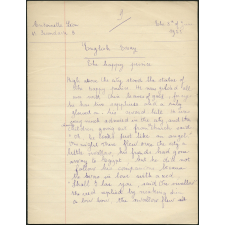 English Essay
The happy prince
High above the city stood the statue of
the happy prince. He was gilded all
over with thin leaves of gold. for eyes
he had two sapphires and a ruby
glowed on his sword hilt. He was
very much admired in the city and the
children coming out from church said
he looks just like an angel.
One night there flew over the city a
little swallow, his friends had gone
away to Egypt but he did not
follow his companions because
he was in love with a reed.
Shall I love you said the swallow
the reed replied by making
a low bow. the swallow flew